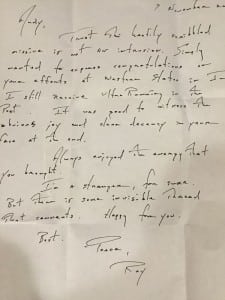 7 November
Andy,
I trust this hastily scribbled
missive is not an intrusion. Simply
wanted to express congratulations on
your efforts at Western States in
I still receive UltraRunning in the
Post. It was good to witness the
obvious joy and sheer decency in your
face at the end.
Always enjoyed the energy that
you brought.
I'm a stranger, for sure.
But there is some invisible thread
that connects. Happy for you.
Best.
Peace,
Roy